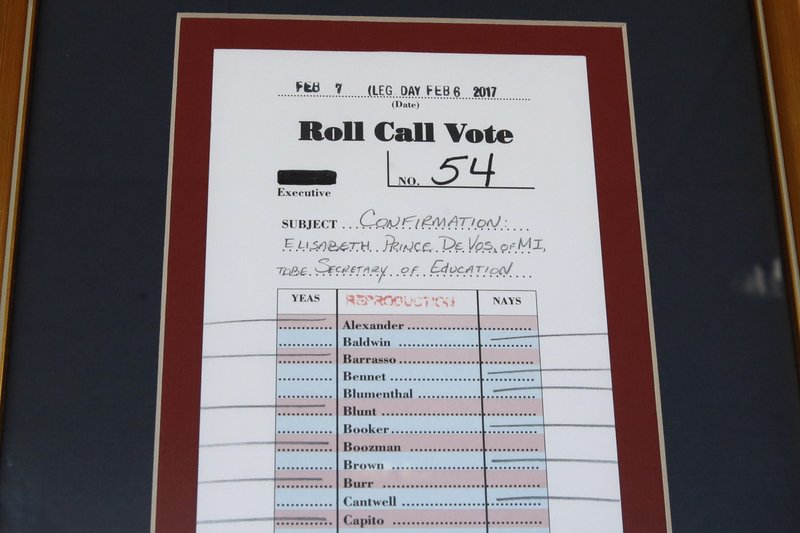 FEB 7 (LEG. DAY FEB 6 2017
(Date)
Roll Call Vote
NO. 54
Executive
SUBJECT CONFIRMATION:
ELISABETH PRINCE DEVOS, OF MI,
TO BE SECRETARY OF EDUCATION
YEAS REPRODUCTION NAYS
Alexander
Baldwin
Barrasso
Bennet
Blumenthal
Blunt
Booker
Boozman
Brown
Burr
Cantwell
Capito